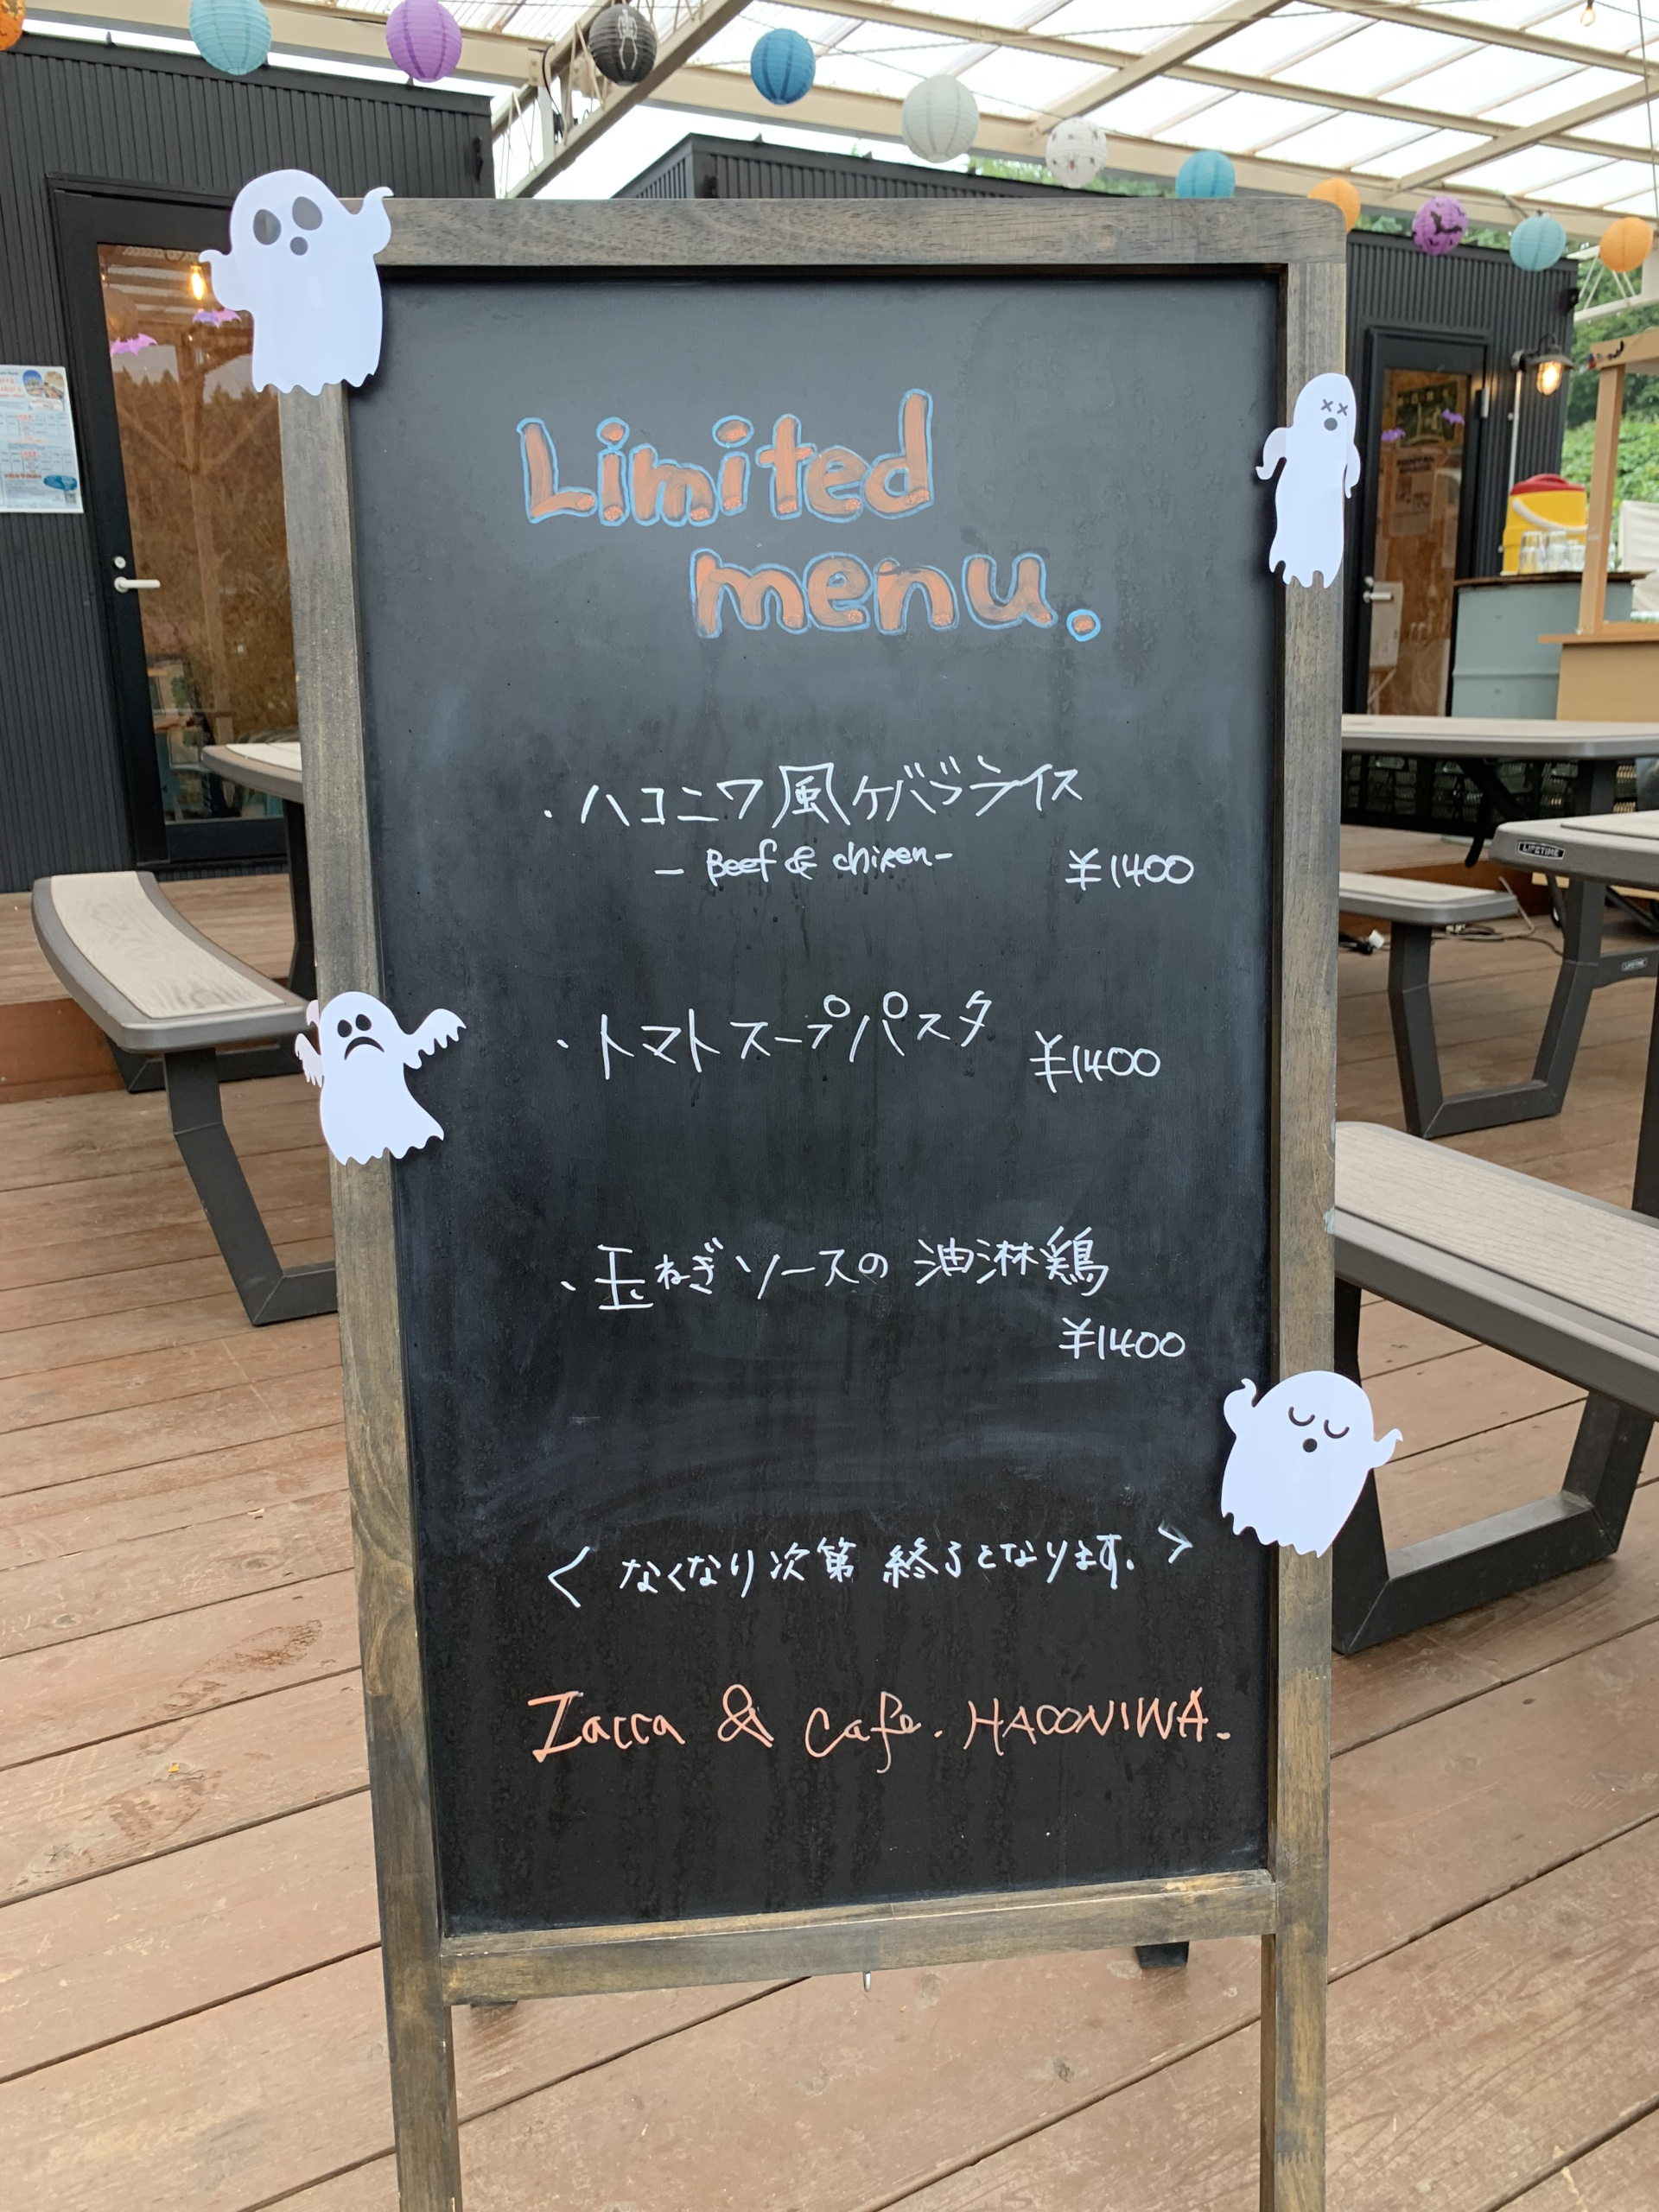 Limited
menu.
・ハコニワ風ケバブライス
- Beef & chiken -
¥1400
・トマトスープパスタ
¥1400
・玉ねぎソースの油淋鶏
¥1400
< なくなり次第 終了となります。 >
Zacca & Cafe. HACONIWA.
LIFETIME
LIFETIME